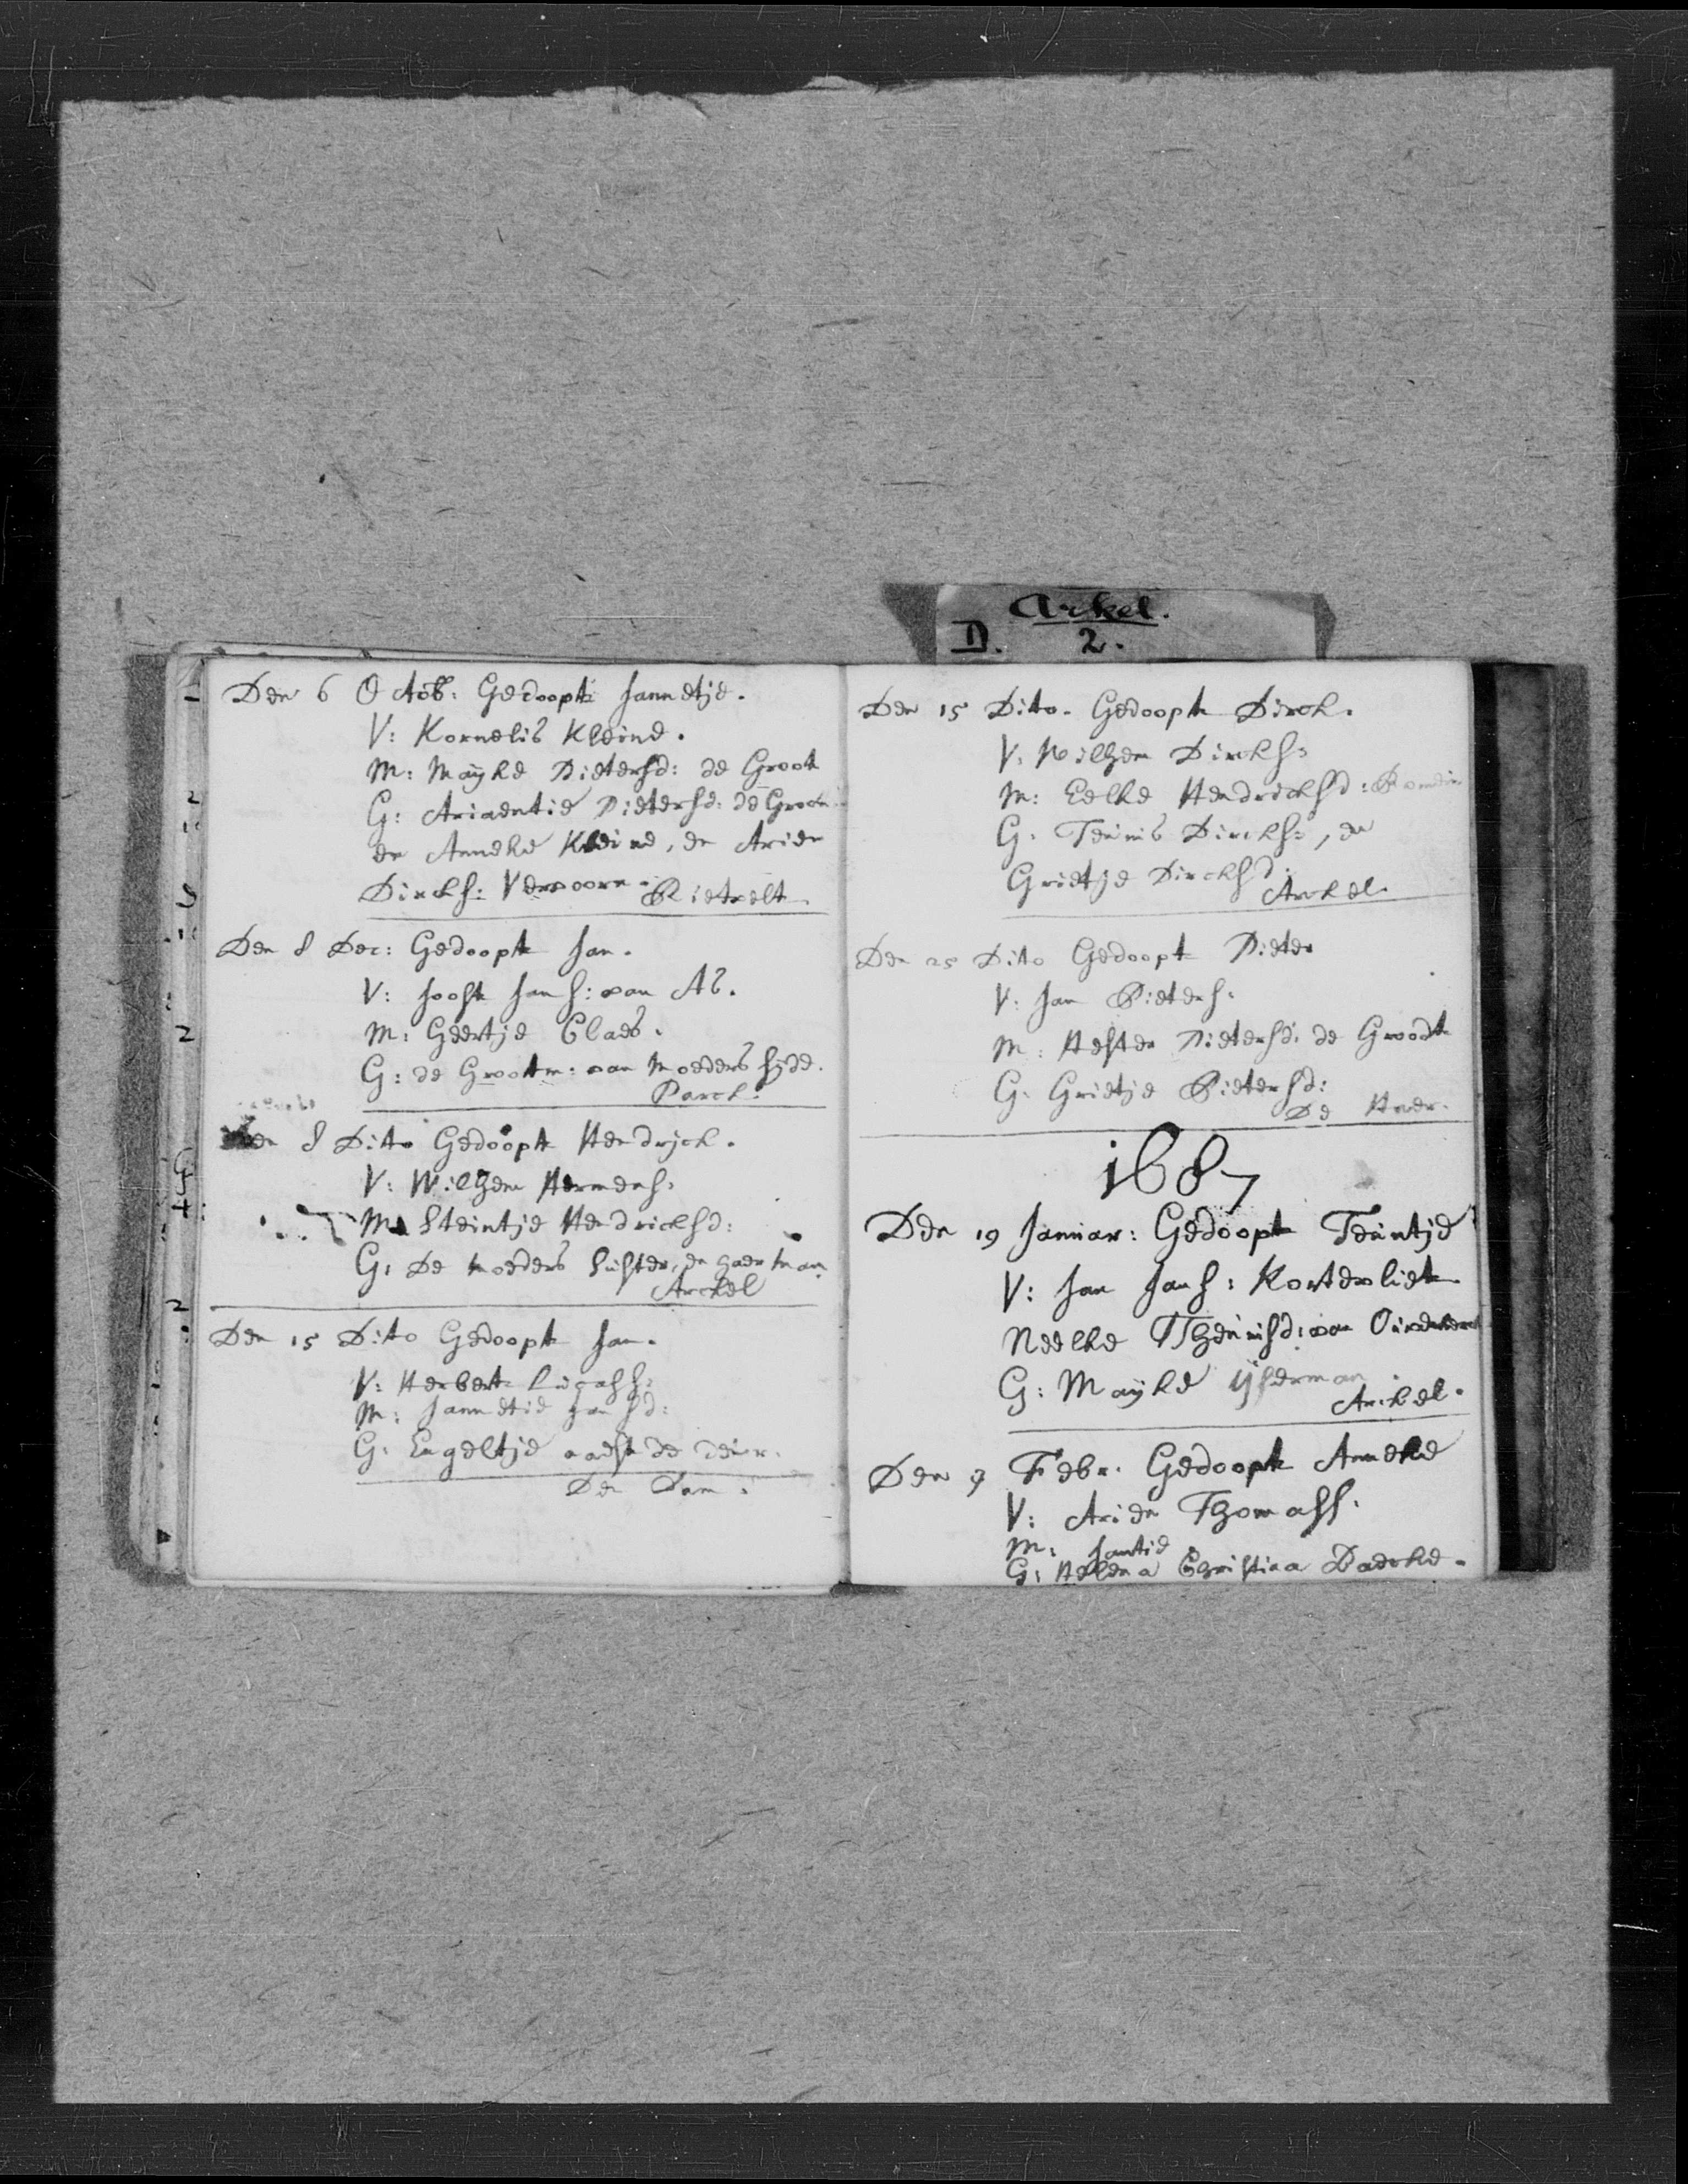 Arkel.
D. 2.
Den 6 Octob: Gedoopt Jannetje.
V: Kornelis Kleine.
M: Mayke Pietersd: de Groot
G: Ariaentie Pietersd: de Groot
en Anneke Kleine, en Arien
Dircks: Vervoorn. Rietvelt
Den 8 Dec: Gedoopt Jan.
V: Joost Jans: van As.
M: Geertje Claes.
G: de Grootm: van moeders syde.
Parck.
Den 8 Dito Gedoopt Hendryck.
V: Willem Hermens:
M: Steintje Hendricksd:
G: De moeders suster, en haer man
Arckel
Den 15 Dito Gedoopt Jan.
V: Herbert Lucass:
M: Jannetie Jansd:
G: Engeltje naest de deur.
Den Dam.
Den 15 Dito. Gedoopt Dirck.
V: Willem Dircks:
M: Eelke Hendricksd:
G: Teunis Dircks:, en
Grietje Dircksd:
Arckel.
Den 25 Dito Gedoopt Pieter
V: Jan Pieters:
M: Hester Pietersd: de Groodt
G: Grietje Pietersd:
De Haer.
1687
Den 19 Januar: Gedoopt Teuntje
V: Jan Jans: Kortevliet
Neelke Theunisd: van
G: Mayke Yserman
Arkel.
Den 9 Febr. Gedoopt Anneke
V: Arien Thomass:
M: Jantie
G: Helena Christina